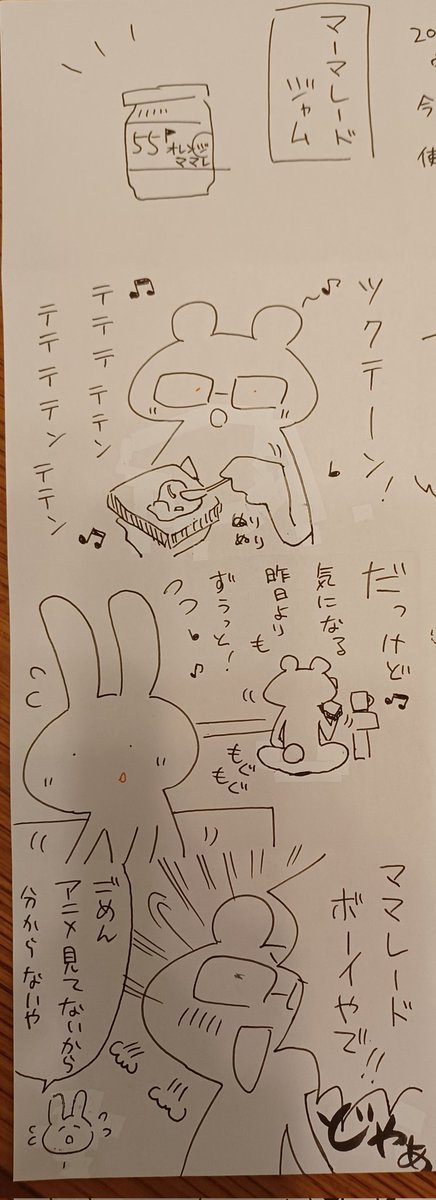 20
今
使
マーマレード
ジャム
55
オレンジ
ママレ
ツクテーン!
テテテテテン
テテテテンテテン
ぬりぬり
だっけど
気になる
昨日よりも
ずうっと!
もぐもぐ
ママレード
ボーイやで!!
どやぁ
ごめん
アニメ見てないから
分からないや